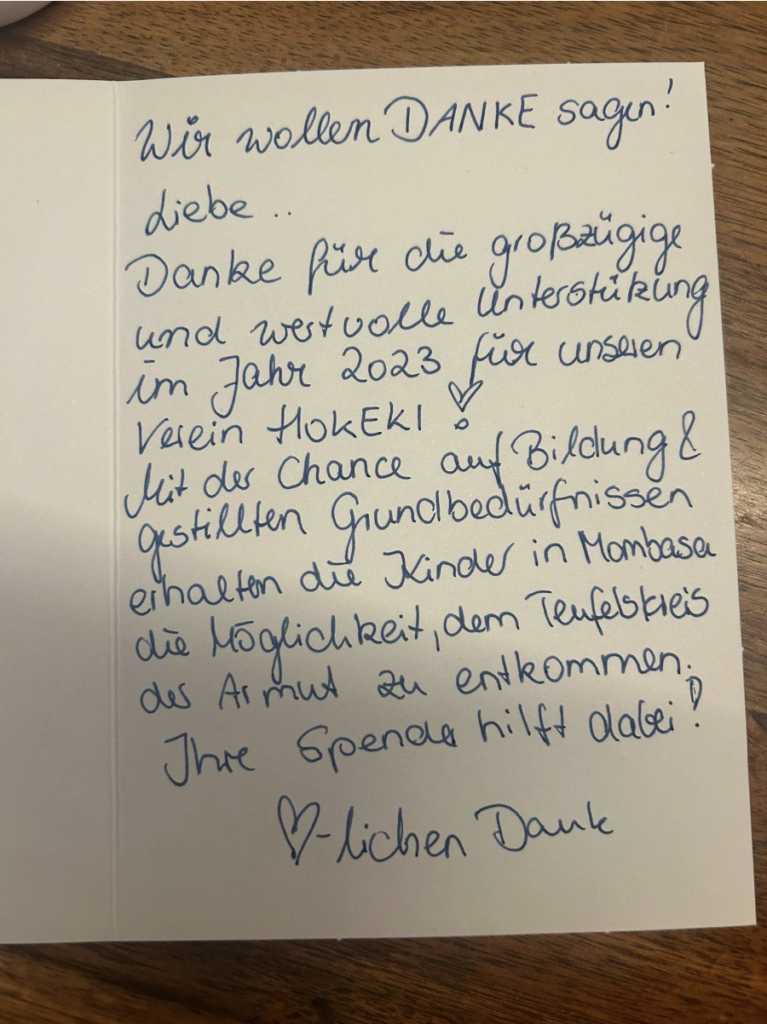 Wir wollen DANKE sagen!
Liebe ..
Danke für die großzügige
und wertvolle Unterstützung
im Jahr 2023 für unseren
Verein HOKEKI !
Mit der Chance auf Bildung &
gestillten Grundbedürfnissen
erhalten die Kinder in Mombasa
die Möglichkeit, dem Teufelskreis
der Armut zu entkommen.
Ihre Spende hilft dabei!
♡-lichen Dank